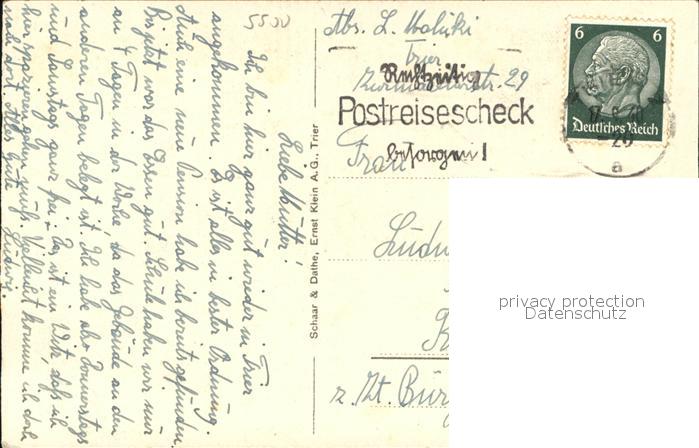 5500
Liebe Mutter!
Ich bin hier ganz gut wieder in Trier
angekommen. Es ist alles in bester Ordnung.
Auch eine neue Pension habe ich bereits gefunden.
Bis jetzt war das Essen gut. Schule haben wir nur
an 4 Tagen in der Woche, da das Gebäude an den
anderen Tagen belegt ist. Ich habe also Donnerstags
und Samstags ganz frei. Es ist ein Witz, daß ich
hier spazieren gehen muß. Vielleicht komme ich doch
noch dort. Alles Gute
Ludwig.
Schaar & Dathe, Ernst Klein A.G., Trier
Abs. L. Molicki
Trier
29
Rechtzeitig
Postreisescheck
besorgen!
6 6
Deutsches Reich
TRIER
a
Frau
Ludw
z. Zt. Bür
privacy protection
Datenschutz